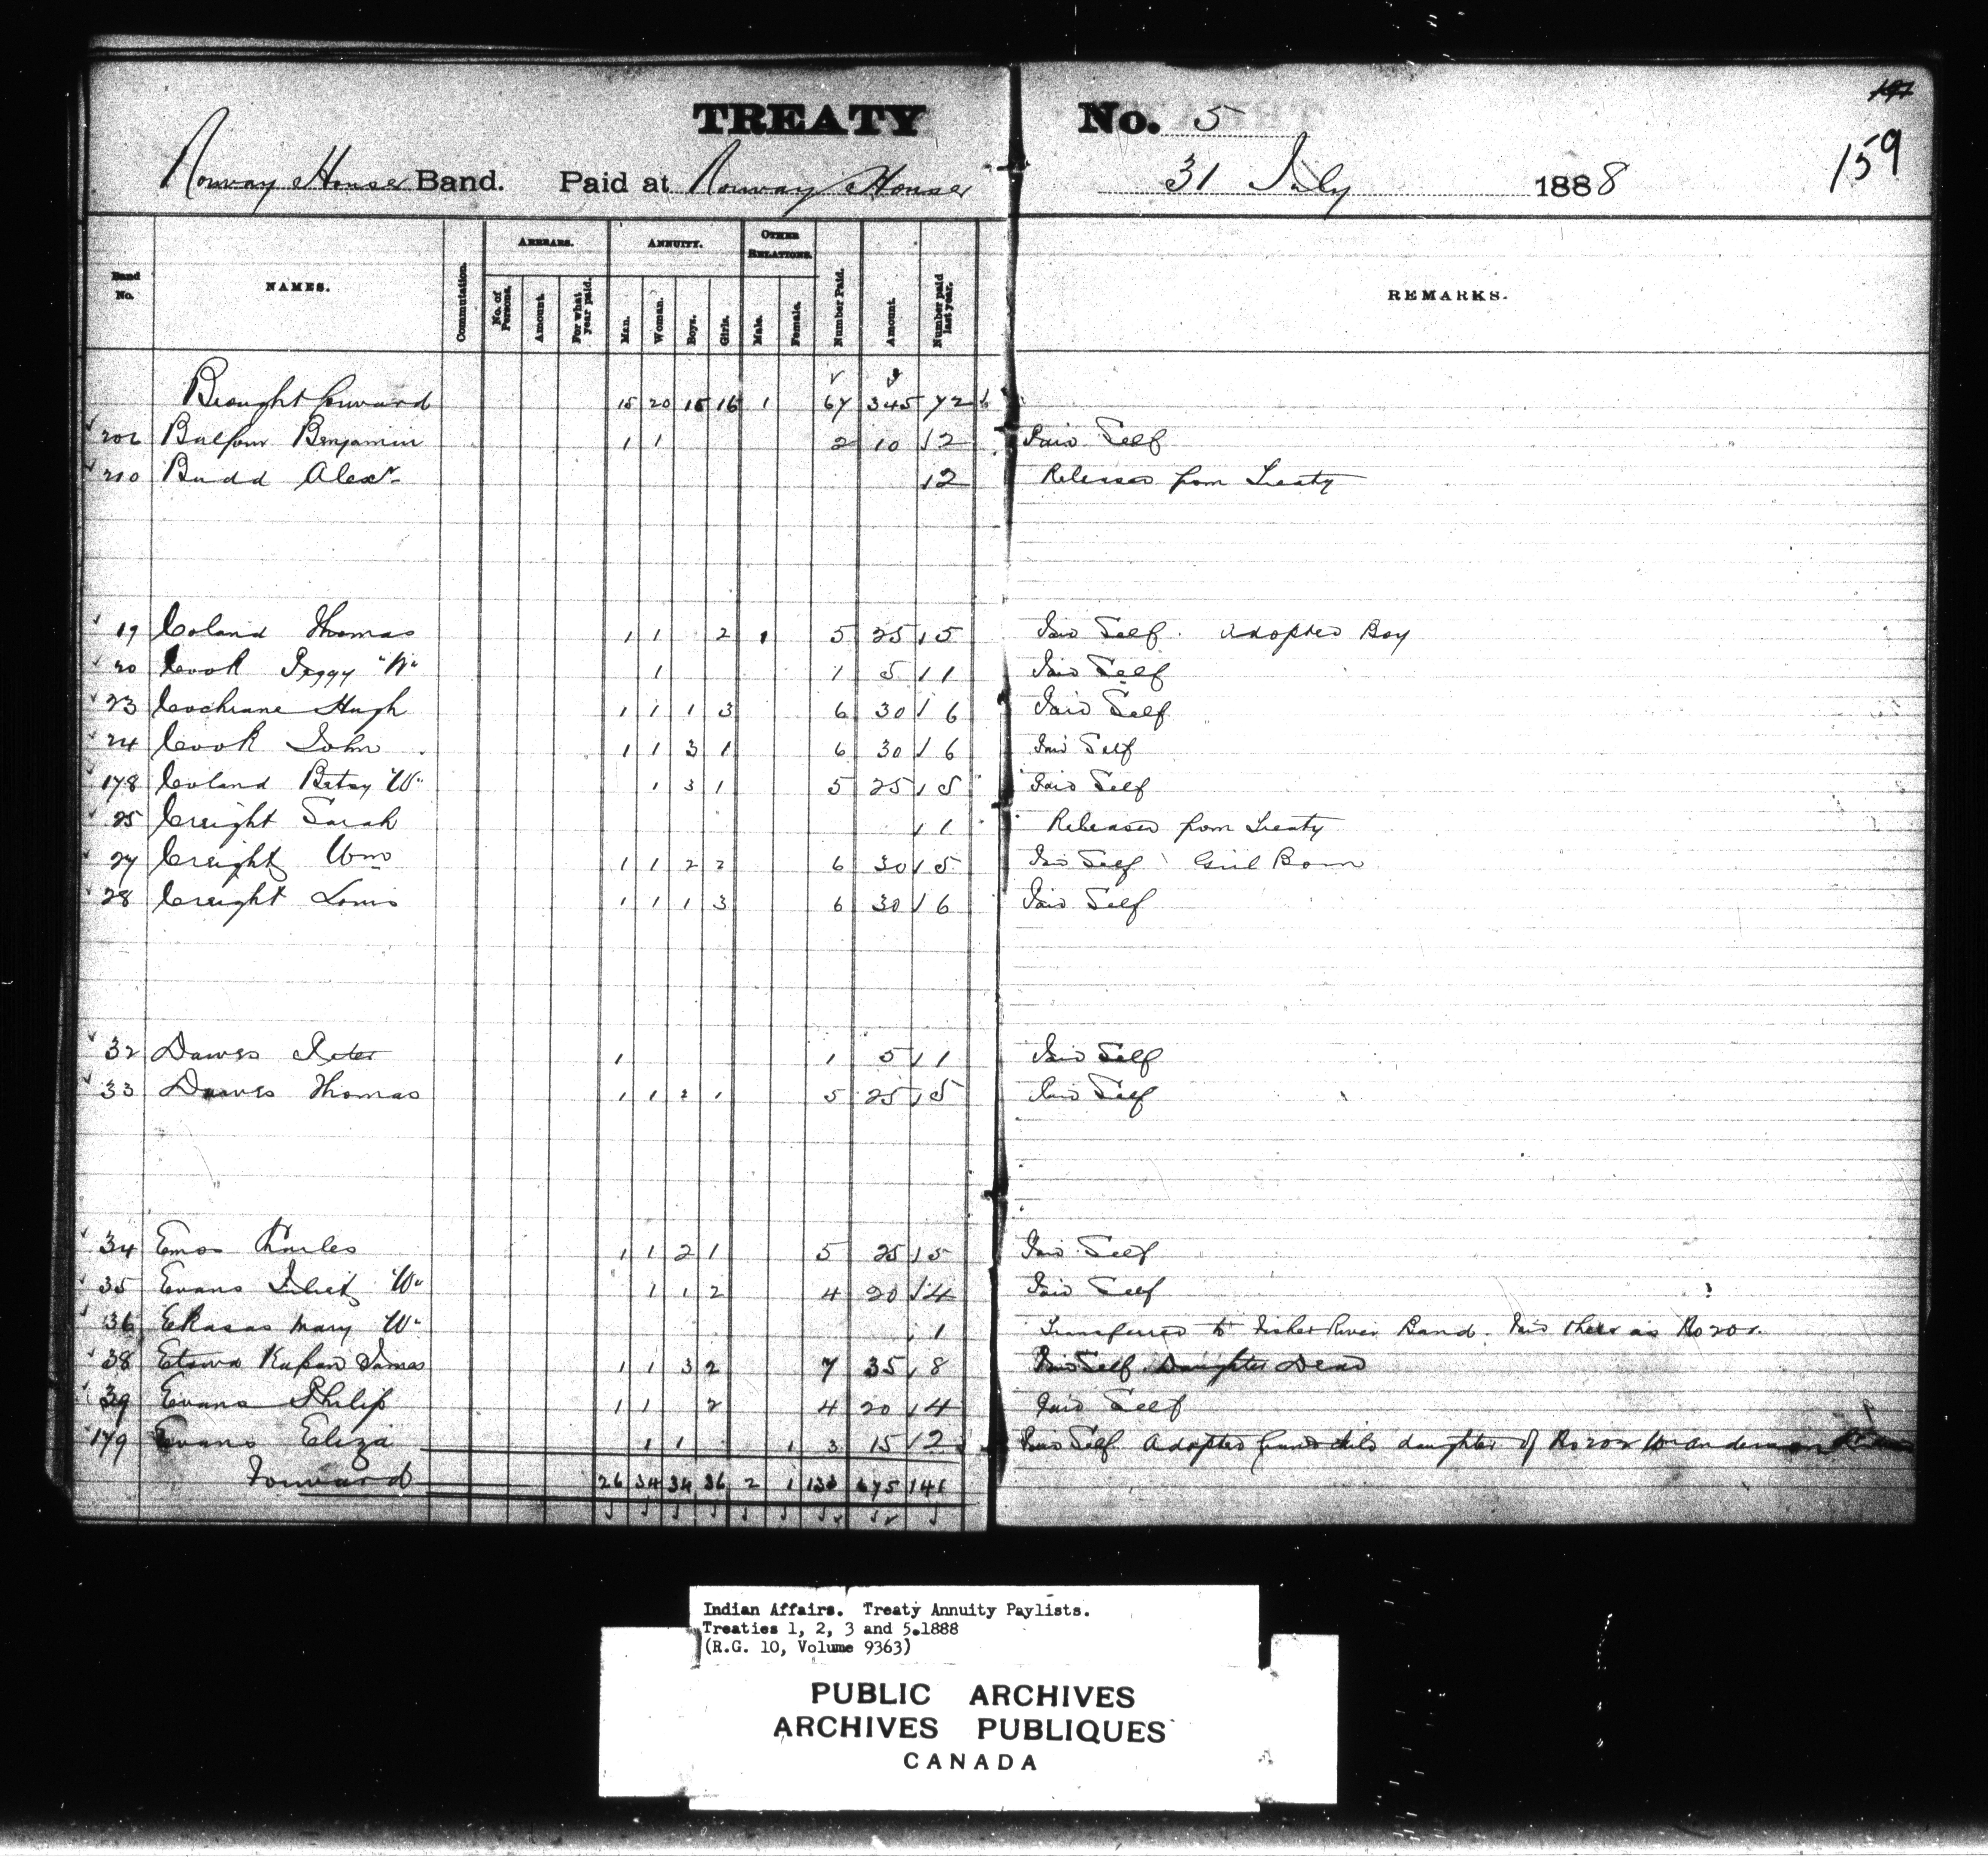 197
159
TREATY No. 5
Norway House Band. Paid at Norway House 31 July 1888
Band No. NAMES. Commutation. ARREARS. No. of Persons. Amount. For what year paid. ANNUITY. Man. Woman. Boys. Girls. OTHER RELATIONS. Male. Female. Number Paid. Amount. Number paid last year. REMARKS.
Brought forward 15 20 15 16 1 67 345 72
206 Balfour Benjamin 1 1 2 10 2 Paid Self
210 Budd Alexr 2 Released from Treaty
19 Coland Thomas 1 1 2 1 5 25 5 Paid Self. Adopted Boy
20 Cook Peggy "W" 1 1 5 1 Paid Self
23 Cochrane Hugh 1 1 1 3 6 30 6 Paid Self
24 Cook John 1 1 3 1 6 30 6 Paid Self
178 Coland Betsy "W" 1 3 1 5 25 5 Paid Self
25 Creight Sarah 1 Released from Treaty
27 Creight Wm 1 1 2 2 6 30 5 Paid Self Girl Born
28 Creight Louis 1 1 1 3 6 30 6 Paid Self
32 Dawes Peter 1 1 5 1 Paid Self
33 Dawes Thomas 1 1 2 1 5 25 5 Paid Self
34 Emos Charles 1 1 2 1 5 25 5 Paid Self
35 Evans Juliet "W" 1 1 2 4 20 4 Paid Self
36 Ekasas Mary W" 1 Transferred to Fisher River Band. Paid there as No 201.
38 Etawa Kapan James 1 1 3 2 7 35 8 Paid Self Daughter Dead
39 Evans Philip 1 1 2 4 20 4 Paid Self
179 Evans Eliza 1 1 1 3 15 2 Paid Self Adopted Grand child daughter of No 202 Wm Anderson
Forward 26 34 34 36 2 1 133 675 141
Indian Affairs. Treaty Annuity Paylists.
Treaties 1, 2, 3 and 5.1888
(R.G. 10, Volume 9363)
PUBLIC ARCHIVES
ARCHIVES PUBLIQUES
CANADA